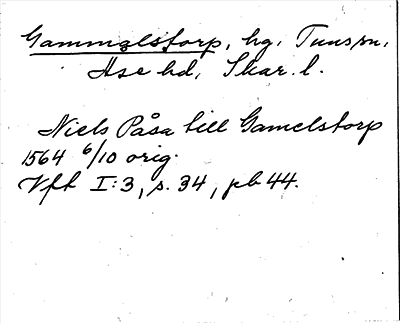 Gammalstorp, hg, Tuns sn,
Åse hd, Skar. l.
Niels Påsa till Gamelstorp
1564 6/10 orig.
Vft I:3, s. 34, pb 44.